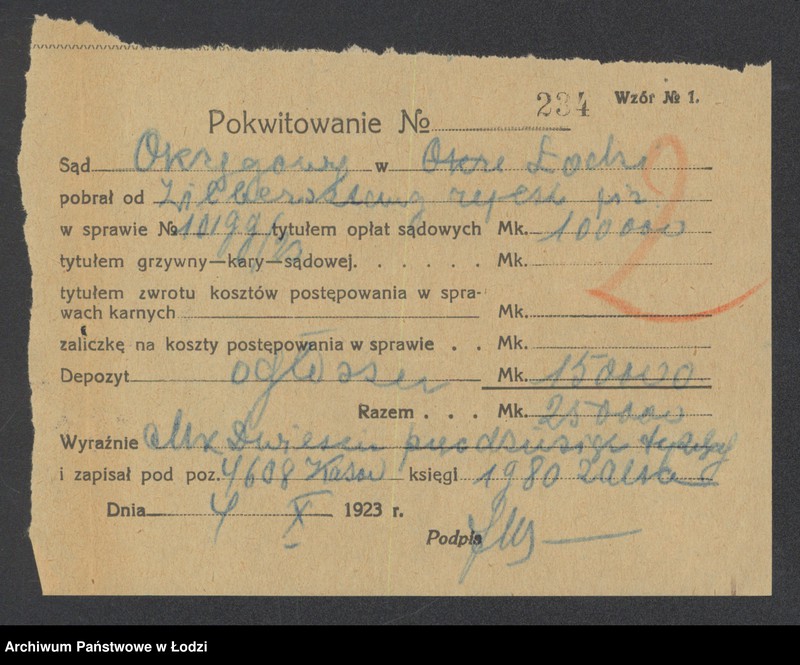 234 Wzór № 1.
Pokwitowanie №
2
Sąd Okręgowy w Łodzi
pobrał od
w sprawie № tytułem opłat sądowych Mk. 100000
tytułem grzywny—kary—sądowej . . . . . . Mk.
tytułem zwrotu kosztów postępowania w spra-
wach karnych Mk.
zaliczkę na koszty postępowania w sprawie . . Mk.
Depozyt ogłoszen Mk. 150000
Razem . . . Mk. 250000
Wyraźnie Mk Dwiescie piecdziesiąt tysięcy
i zapisał pod poz. 4608 Kasow księgi 1980
Dnia 4 X 1923 r.
Podpis
Archiwum Państwowe w Łodzi